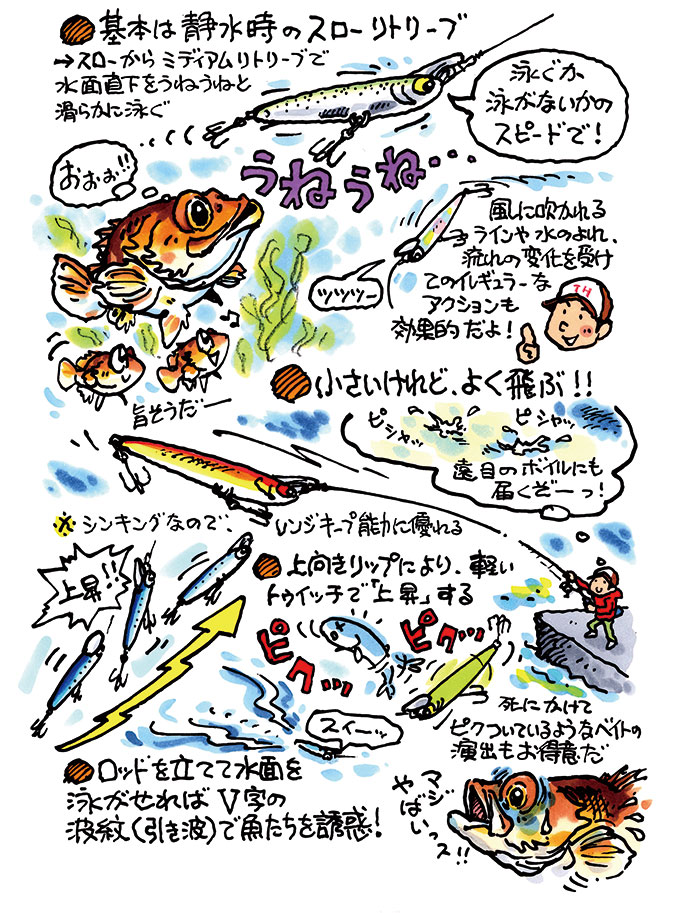 基本は静水時のスローリトリーブ
→スローからミディアムリトリーブで
水面直下をうねうねと
滑らかに泳ぐ
泳ぐか
泳がないかの
スピードで!
おぉぉ!!
うねうね…
風に吹かれる
ラインや水のよれ、
流れの変化を受け
てのイレギュラーな
アクションも
効果的だよ!
ツツツー
TH
旨そうだー
小さいけれど、よく飛ぶ!!
ピシャッ
ピシャッ
遠目のボイルにも
届くぞーっ!
※シンキングなので、レンジキープ能力に優れる
上昇!!
上向きリップにより、軽い
トゥイッチで「上昇」する
ピクッッ
ピクッッ
スイーッ
死にかけて
ピクついているようなベイトの
演出もお得意だ
ロッドを立てて水面を
泳がせれば V字の
波紋(引き波)で魚たちを誘惑!
マジ
やばいっス!!